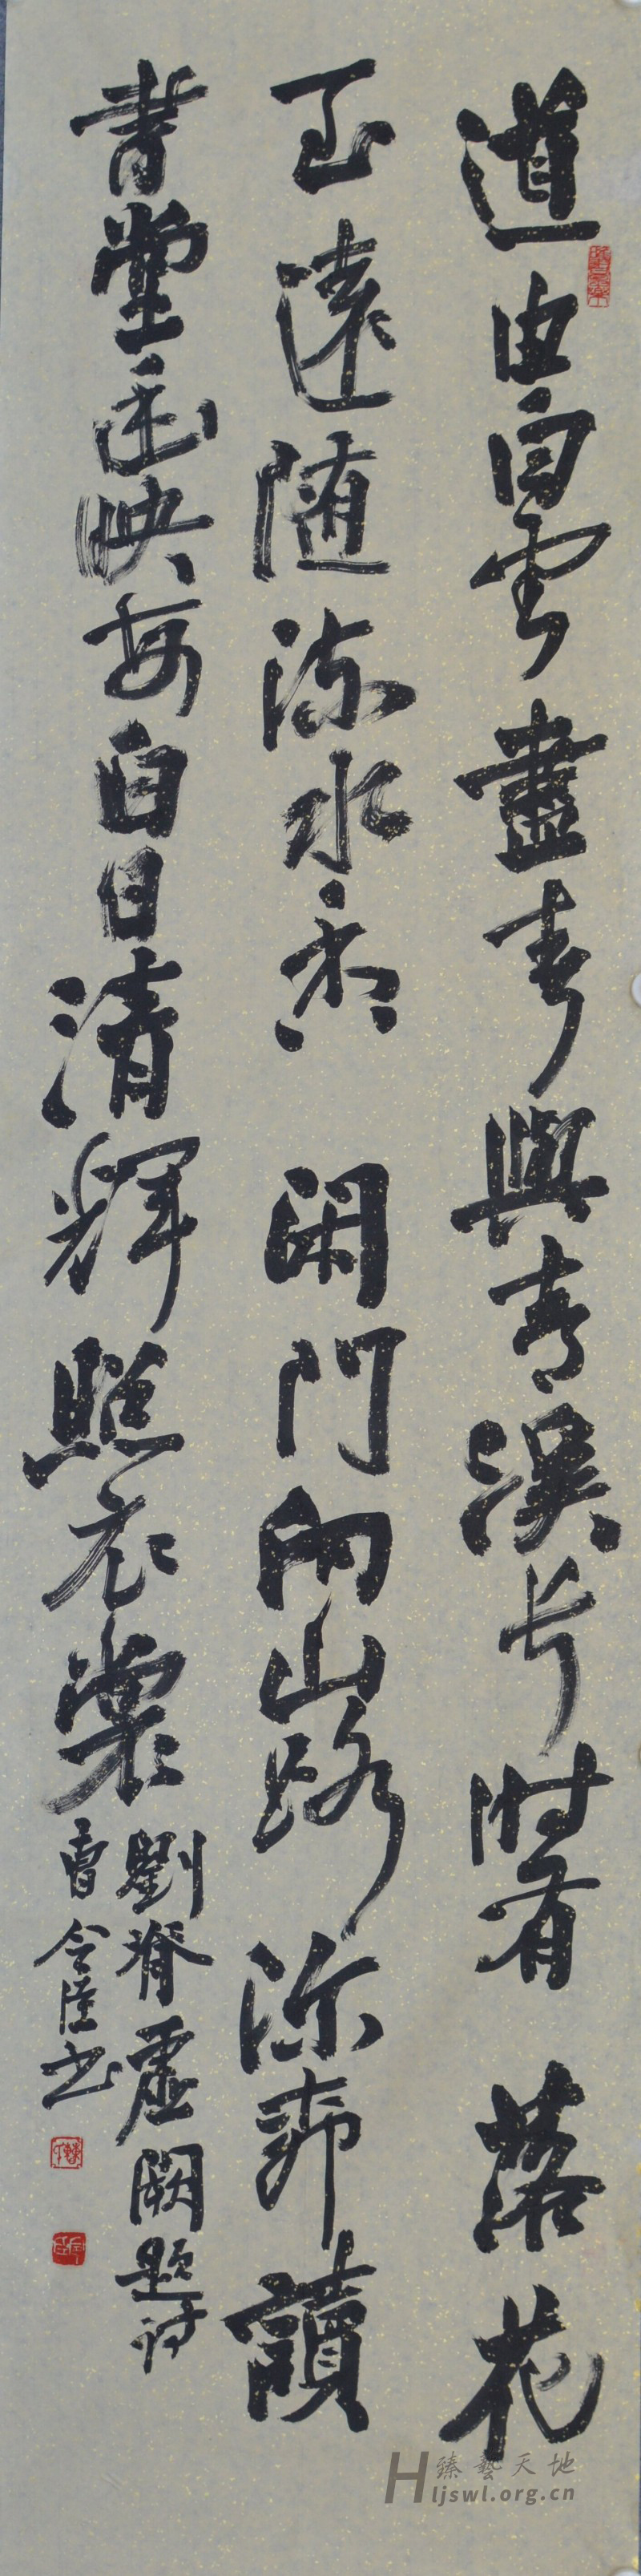 道由白雲盡春與青溪长时有落花
至遠随流水香闲門向山路深柳讀
書堂幽映每白日清輝照衣裳
劉脊虛闕題诗
曹令书
臻藝天地
Hljswl.org.cn